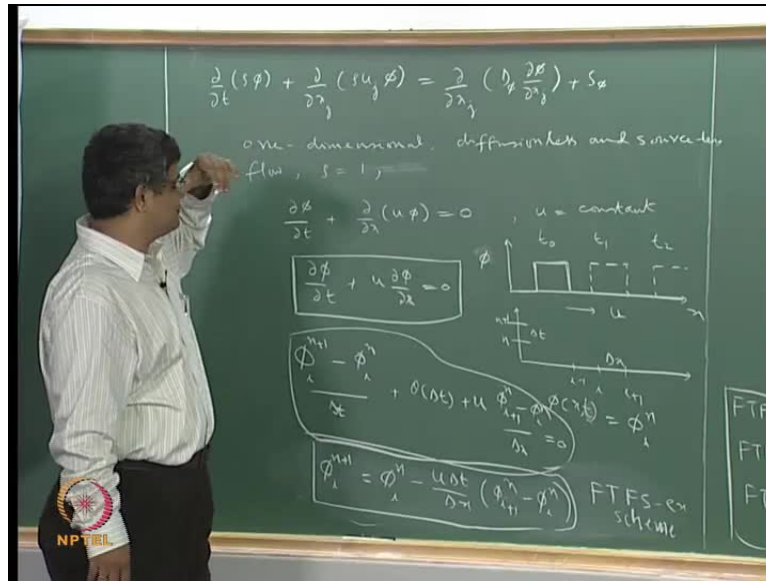 ∂/∂t (ρφ) + ∂/∂x_j (ρu_j φ) = ∂/∂x_j (D_φ ∂φ/∂x_j) + S_φ
one-dimensional, diffusionless and sourceless
flow, ρ = 1,
∂φ/∂t + ∂/∂x (uφ) = 0 , u = constant
∂φ/∂t + u ∂φ/∂x = 0
φ t₀ t₁ t₂
→ u x
n+1
n Δt
Δx
i-1 i i+1
(φ_i^{n+1} - φ_i^n)/Δt + O(Δt) + u (φ_{i+1}^n - φ_i^n)/Δx = 0
φ(x,t) = φ_i^n
φ_i^{n+1} = φ_i^n - uΔt/Δx (φ_{i+1}^n - φ_i^n) FTFS-ex
scheme
FTF
FT
FT
NPTEL